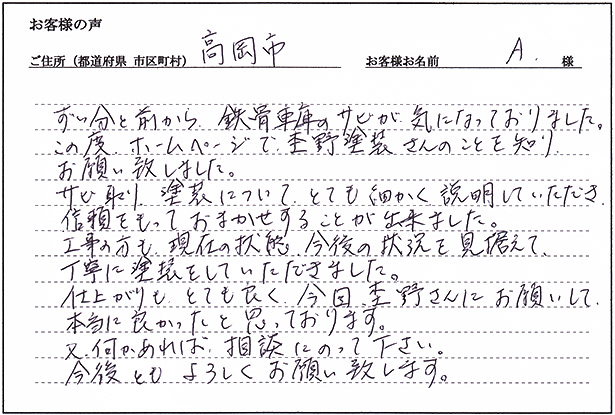 お客様の声
ご住所（都道府県 市区町村） 高岡市 お客様お名前 A. 様
ずい分と前から、鉄骨車庫のサビが気になっておりました。
この度、ホームページで杢野塗装さんのことを知り、
お願い致しました。
サビ取り、塗装について、とても細かく説明していただき、
信頼をもっておまかせすることが出来ました。
工事の方も、現在の状態、今後の状況を見据えて、
丁寧に塗装をしていただきました。
仕上がりも、とても良く、今回、杢野さんにお願いして、
本当に良かったと思っております。
又、何かあれば、相談にのって下さい。
今後ともよろしくお願い致します。